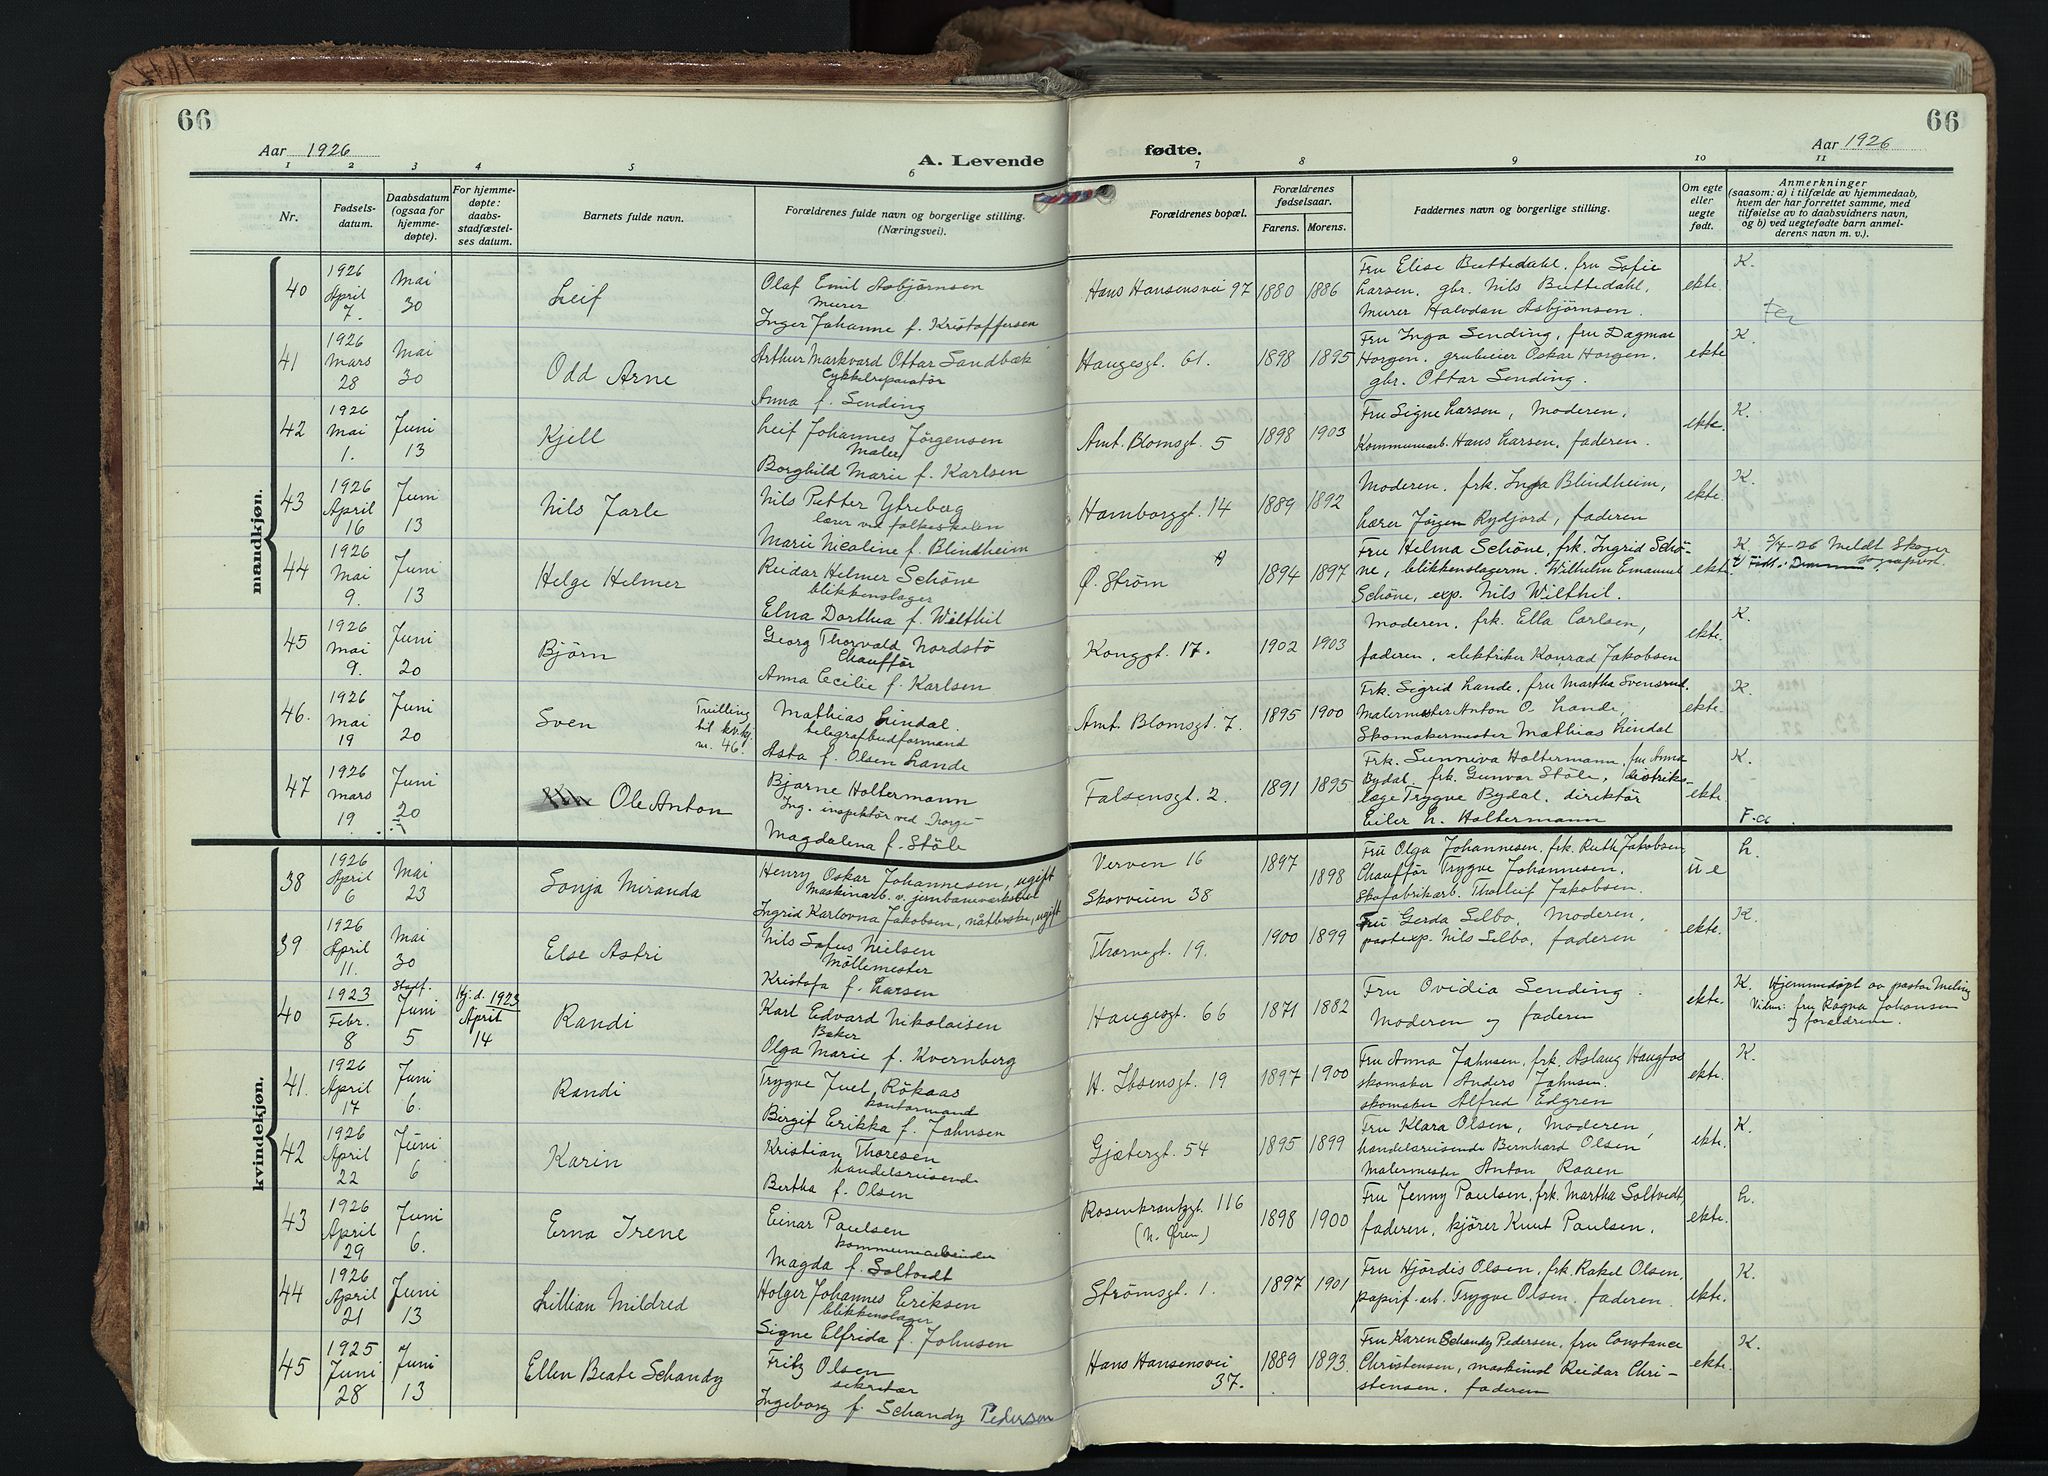 66
66
Aar 1926
A. Levende
fødte.
Aar 1926
1 2 3 4 5 6 7 8 9 10 11
Nr.
Fødsels-
datum.
Daabsdatum
(ogsaa for
hjemme-
døpte).
For hjemme-
døpte:
daabs-
stadfæstel-
ses datum.
Barnets fulde navn.
Forældrenes fulde navn og borgerlige stilling.
(Næringsvei).
Forældrenes bopæl.
Forældrenes
fødselsaar.
Farens. Morens.
Faddernes navn og borgerlige stilling.
Om egte
eller
uegte
født.
Anmerkninger
(saasom: a) i tilfælde av hjemmedaab,
hvem der har forrettet samme, med
tilføielse av to daabsvidners navn,
og b) ved uegtefødte barn anmel-
derens navn m. v.).
mandkjøn.
40
1926
April
7.
Mai
30
Leif
Olaf Emil Asbjørnsen
murer
Inger Johanne f. Kristoffersen
Hans Hansensvei 97
1880 1886
Fru Elise Buttedahl, fru Sofie
Larsen, gbr. Nils Buttedahl,
Murer Halvdan Asbjørnsen.
ekte
K.
41
1926
Mars
28
Mai
30
Odd Arne
Arthur Markvard Ottar Sandbæk
Cykkelreparatør
Anna f. Sending
Haugesgt. 61.
1898 1895
Fru Inga Sending, fru Dagmar
Horgen, grubeier Oskar Horgen,
gbr. Ottar Sending.
ekte
K.
42
1926
Mai
1.
Juni
13
Kjell
Leif Johannes Jørgensen
Maler
Borghild Marie f. Karlsen
Amt. Blomsgt. 5
1898 1903
Fru Signe Larsen, Moderen,
Kommunearb. Hans Larsen, faderen.
ekte.
K.
43
1926
April
16
Juni
13
Nils Jarle
Nils Petter Ytrebøg
lærer ved folkeskolen
Marie Nicoline f. Blindheim
Hamborggt. 14
1889 1892
Moderen, frk. Inga Blindheim,
Lærer Jørgen Rydjord, faderen
ekte.
K.
44
1926
Mai
9.
Juni
13
Helge Helmer
Reidar Helmer Schöne
blikkenslager
Elna Dorthea f. Wilthil
Ø. Strøm
1894 1897
Fru Helma Schöne, frk. Ingrid Schö-
ne, blikkenslagerm. Wilhelm Emanuel
Schöne, exp. Nils Wilthil.
ekte.
K. 5/4-26 Meldt Skoger
45
1926
Mai
9.
Juni
20
Bjørn
Georg Thorvald Nordstø
Chauffør
Anna Cecilie f. Karlsen
Konggt. 17.
1902 1903
Moderen, frk. Ella Carlsen,
faderen, elektriker Konrad Jakobsen
ekte.
K.
46.
1926
Mai
19
Juni
20
Sven
Tvilling
til kv.kj.
nr. 46!
Mathias Lindal.
telegrafbudformand
Asta f. Olsen Lande
Amt. Blomsgt. 7.
1895 1900
Frk. Sigrid Lande, fru Martha Svensrud,
Malermester Anton O. Lande,
Skomakermester Mathias Lindal
ekte.
K.
47
1926
Mars
19
Juni
20
Ole Anton
Bjarne Holtermann
Ing. inspektør ved Norge-
Magdalena f. Støle
Falsensgt. 2.
1891 1895
Frk. Sunniva Holtermann, fru Anna
Bydal, frk. Gunvar Støle, distriks-
læge Trygve Bydal, direktør
Eiler H. Holtermann
ekte.
K.
F.a
kvindekjøn.
38
1926
April
6
Mai
23
Sonja Miranda
Henry Oskar Johannesen, ugift
Maskinarb. v. jernbaneverkstedet
Ingrid Karlovna Jakobsen, nåtlerske, ugift
Verven 16
Skovveien 38
1897 1898
Fru Olga Johannesen, frk. Ruth Jakobsen,
Chauffør Trygve Johannesen,
Skofabrikarb. Thorleif Jakobsen.
u e
h.
39
1926
April
11.
Mai
30
Else Astri
Nils Sofus Nielsen
Møllemester
Kristofa f. Larsen
Thornegt. 19.
1900 1899
Fru Gerda Selbo, Moderen,
postexp. Nils Selbo, faderen
ekte.
K.
40
1923
Febr.
8
Stadf.
Juni
5
Hj.d. 1923
April
14
Randi
Karl Edvard Nikolaisen
Baker
Olga Marie f. Kvernberg
Haugesgt 66
1871 1882
Fru Ovidia Sending.
Moderen og faderen
ekte.
K. Hjemmedøpt av pastor Meling
Vidner: fru Ragna Johansen
og forældrene.
41.
1926
April
17
Juni
6.
Randi
Trygve Juel Rökaas
kontormand
Birgit Erikka f. Jahnsen
H. Ibsensgt. 19
1897 1900
Fru Anna Jahnsen, frk. Aslaug Haugfos
skomaker Anders Jahnsen.
skomaker Alfred Edgren
ekte.
K.
42
1926
April
22
Juni
6
Karin
Kristian Thoresen
handelsreisende
Bertha f. Olsen
Gjætergt. 54
1895 1899
Fru Klara Olsen, Moderen,
handelsreisende Bernhard Olsen
Malermester Anton Raaen
ekte.
K.
43
1926
April
29
Juni
6.
Erna Irene
Einar Paulsen
kommunearbeider
Magda f. Soltvedt
Rosenkrantzgt. 116
(N. Øren)
1898 1900
Fru Jenny Paulsen, frk. Martha Soltvedt,
faderen, kjører Knut Paulsen.
ekte.
h.
44
1926
April
21
Juni
13
Lillian Mildred
Holger Johannes Eriksen
blikkenslager
Signe Elfrida f. Johnsen
Strømsgt. 1.
1897 1901
Fru Hjördis Olsen, frk. Rakel Olsen,
papirf.arb. Trygve Olsen, faderen.
ekte.
K.
45
1925
Juni
28
Juni
13
Ellen Beate Schandy
Fritz Olsen
sekretær
Ingeborg f. Schandy Pedersen
Hans Hansensvei
37.
1889 1893.
Fru Karen Schandy Pedersen, fru Constance
Christensen, maskinist Reidar Chri-
stensen, faderen
ekte.
K.